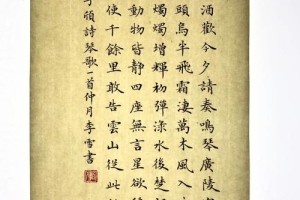 酒歡今夕請奏鳴琴廣陵
頭烏半飛霜淒萬木風入
燭燭增輝初彈淥水後楚
動物皆靜四座無言星欲
使千餘里敢告雲山從此
頎詩琴歌一首仲月李雪書